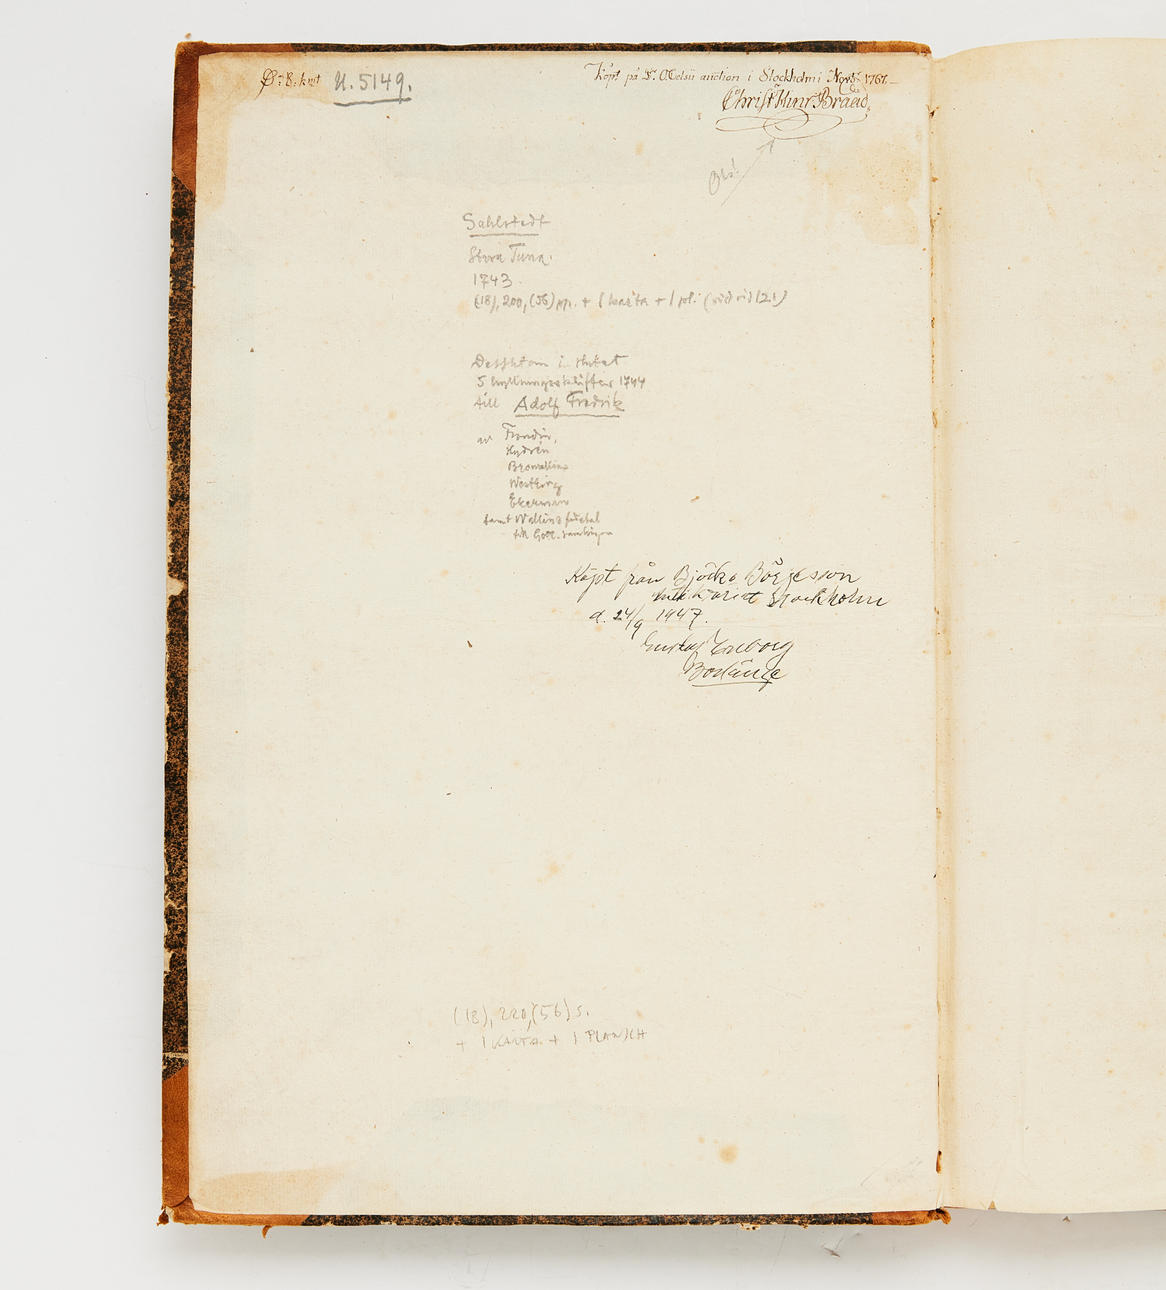 Ø: 8: kmt U. 5149.
Köpt på Sr. O Celsii auction i Stockholm i Novbr. 1767.
Christ Hinr Braad.
Obs!
Sahlstedt
Stora Tuna.
1743.
(18), 200, (56) pp. + 1 karta + 1 pl. (vid sid 121)
Dessutom i slutet
5 hyllningsskrifter 1744
till Adolf Fredrik
av Frondin,
Hydrén
Browallius
Westring
Ekerman
samt Wallins
till
Köpt från Björck & Börjesson
antikvariat Stockholm
d. 24/9 1947.
Gustaf Enborg
Borlänge
(18), 220, (56) s.
+ 1 KARTA + 1 PLANSCH